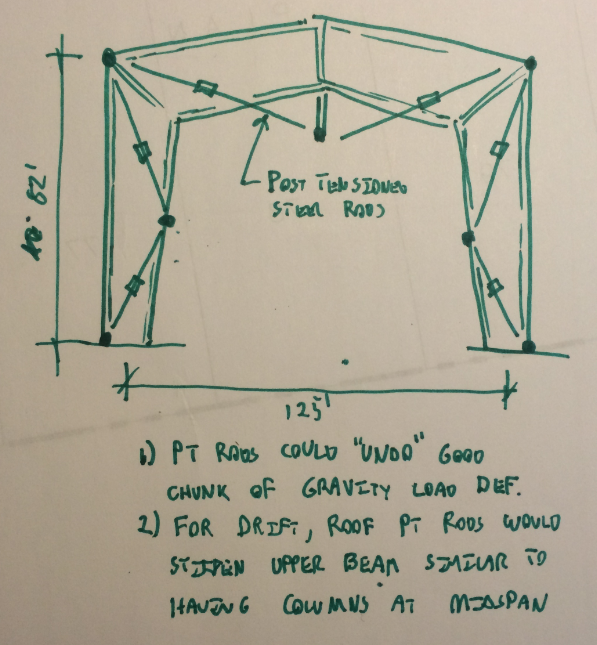 82'
POST TENSIONED
STEEL RODS
125'
1) PT RODS COULD "UNDO" GOOD
CHUNK OF GRAVITY LOAD DEF.
2) FOR DRIFT, ROOF PT RODS WOULD
STIFFEN UPPER BEAM SIMILAR TO
HAVING COLUMNS AT MIDSPAN